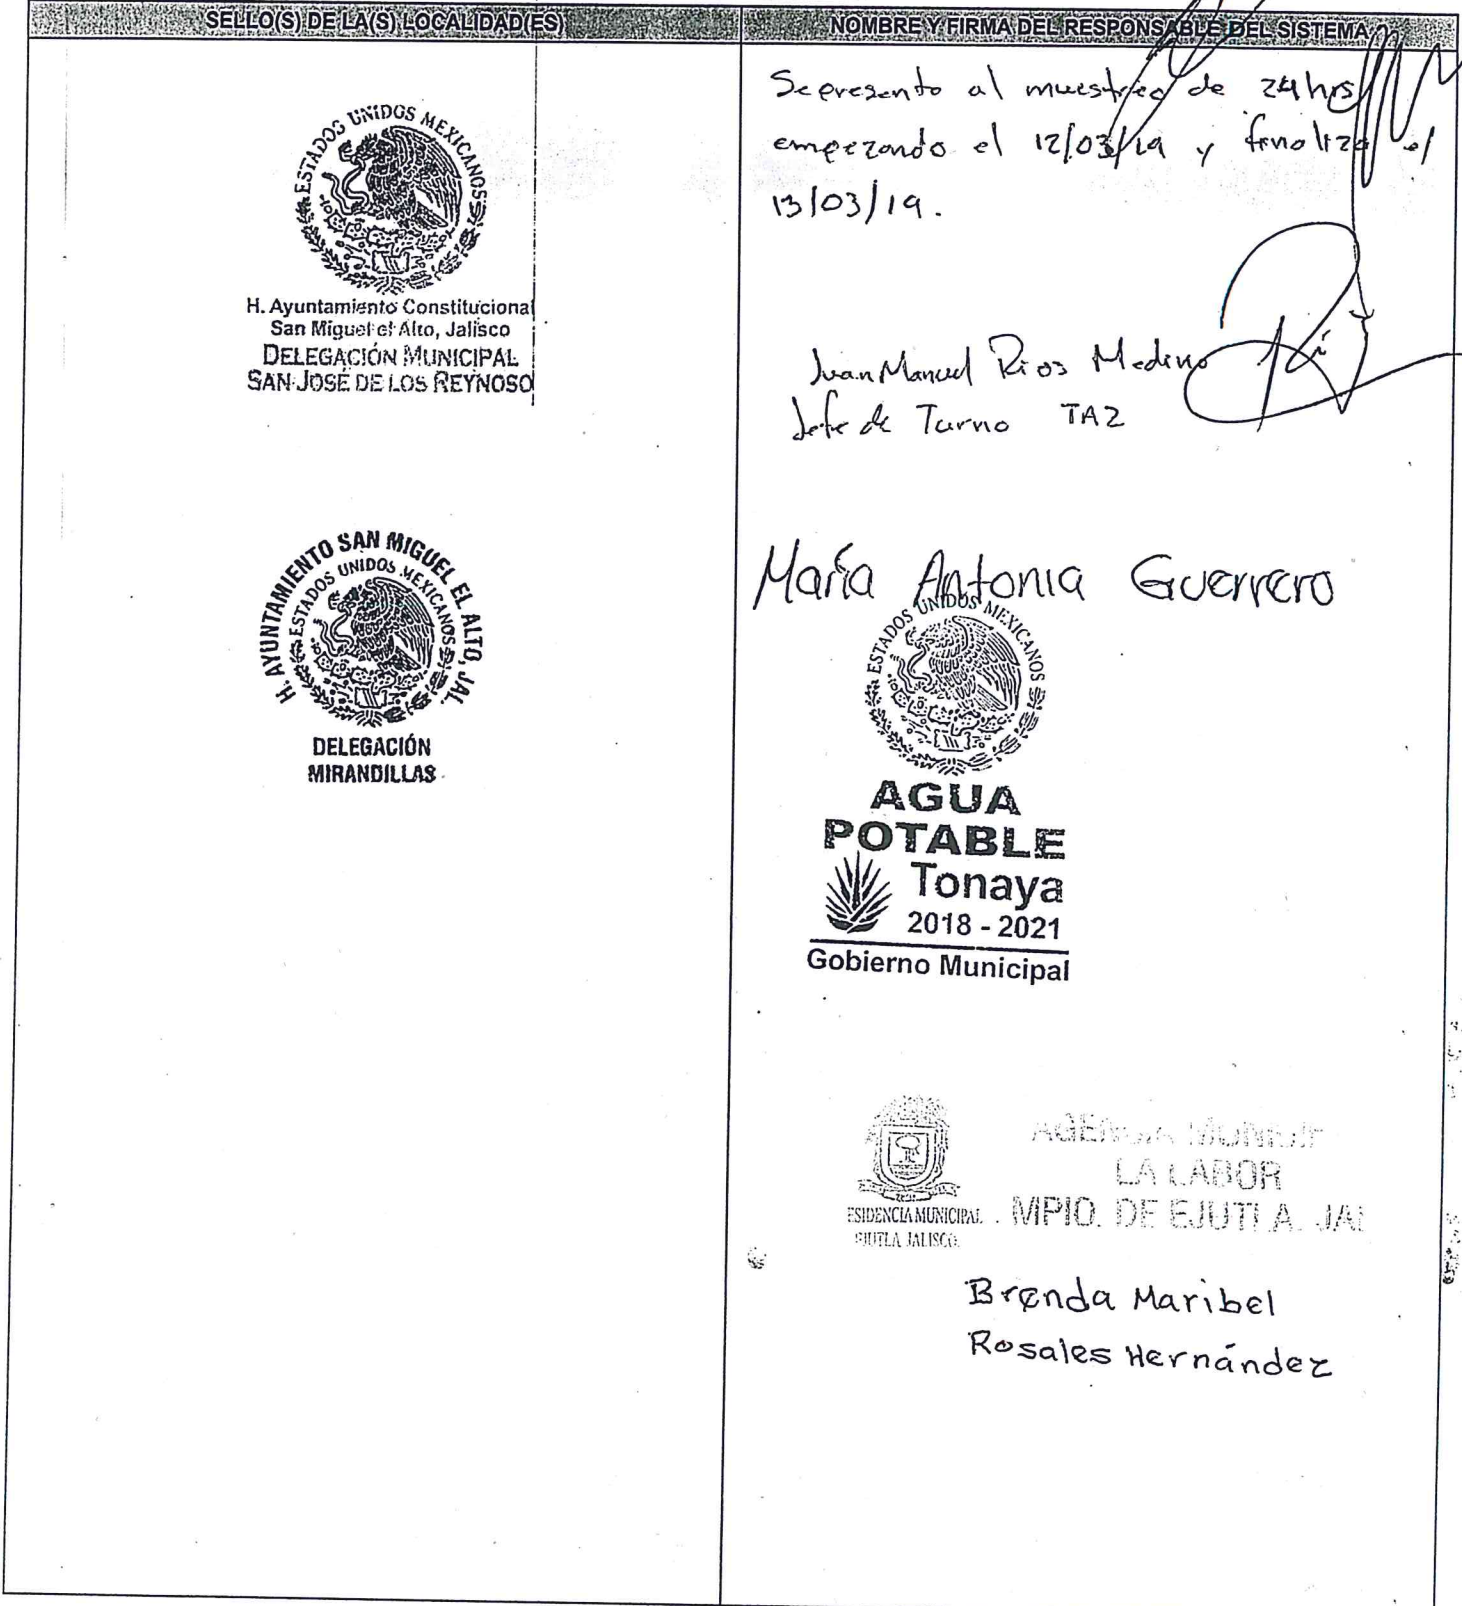 SELLO(S) DE LA(S) LOCALIDAD(ES)
NOMBRE Y FIRMA DEL RESPONSABLE DEL SISTEMA
ESTADOS UNIDOS MEXICANOS
H. Ayuntamiento Constitucional
San Miguel el Alto, Jalisco
DELEGACIÓN MUNICIPAL
SAN JOSÉ DE LOS REYNOSO
H. AYUNTAMIENTO SAN MIGUEL EL ALTO, JAL.
ESTADOS UNIDOS MEXICANOS
DELEGACIÓN
MIRANDILLAS
Se presento al muestreo de 24hrs
empezando el 12/03/19 y finalizo el
13/03/19.
Juan Manuel Rios Medina
Jefe de Turno TA2
María Antonia Guerrero
ESTADOS UNIDOS MEXICANOS
AGUA
POTABLE
Tonaya
2018 - 2021
Gobierno Municipal
ESIDENCIA MUNICIPAL
EJUTLA JALISCO.
LA LABOR
MPIO. DE EJUTLA. JAL
Brenda Maribel
Rosales Hernández